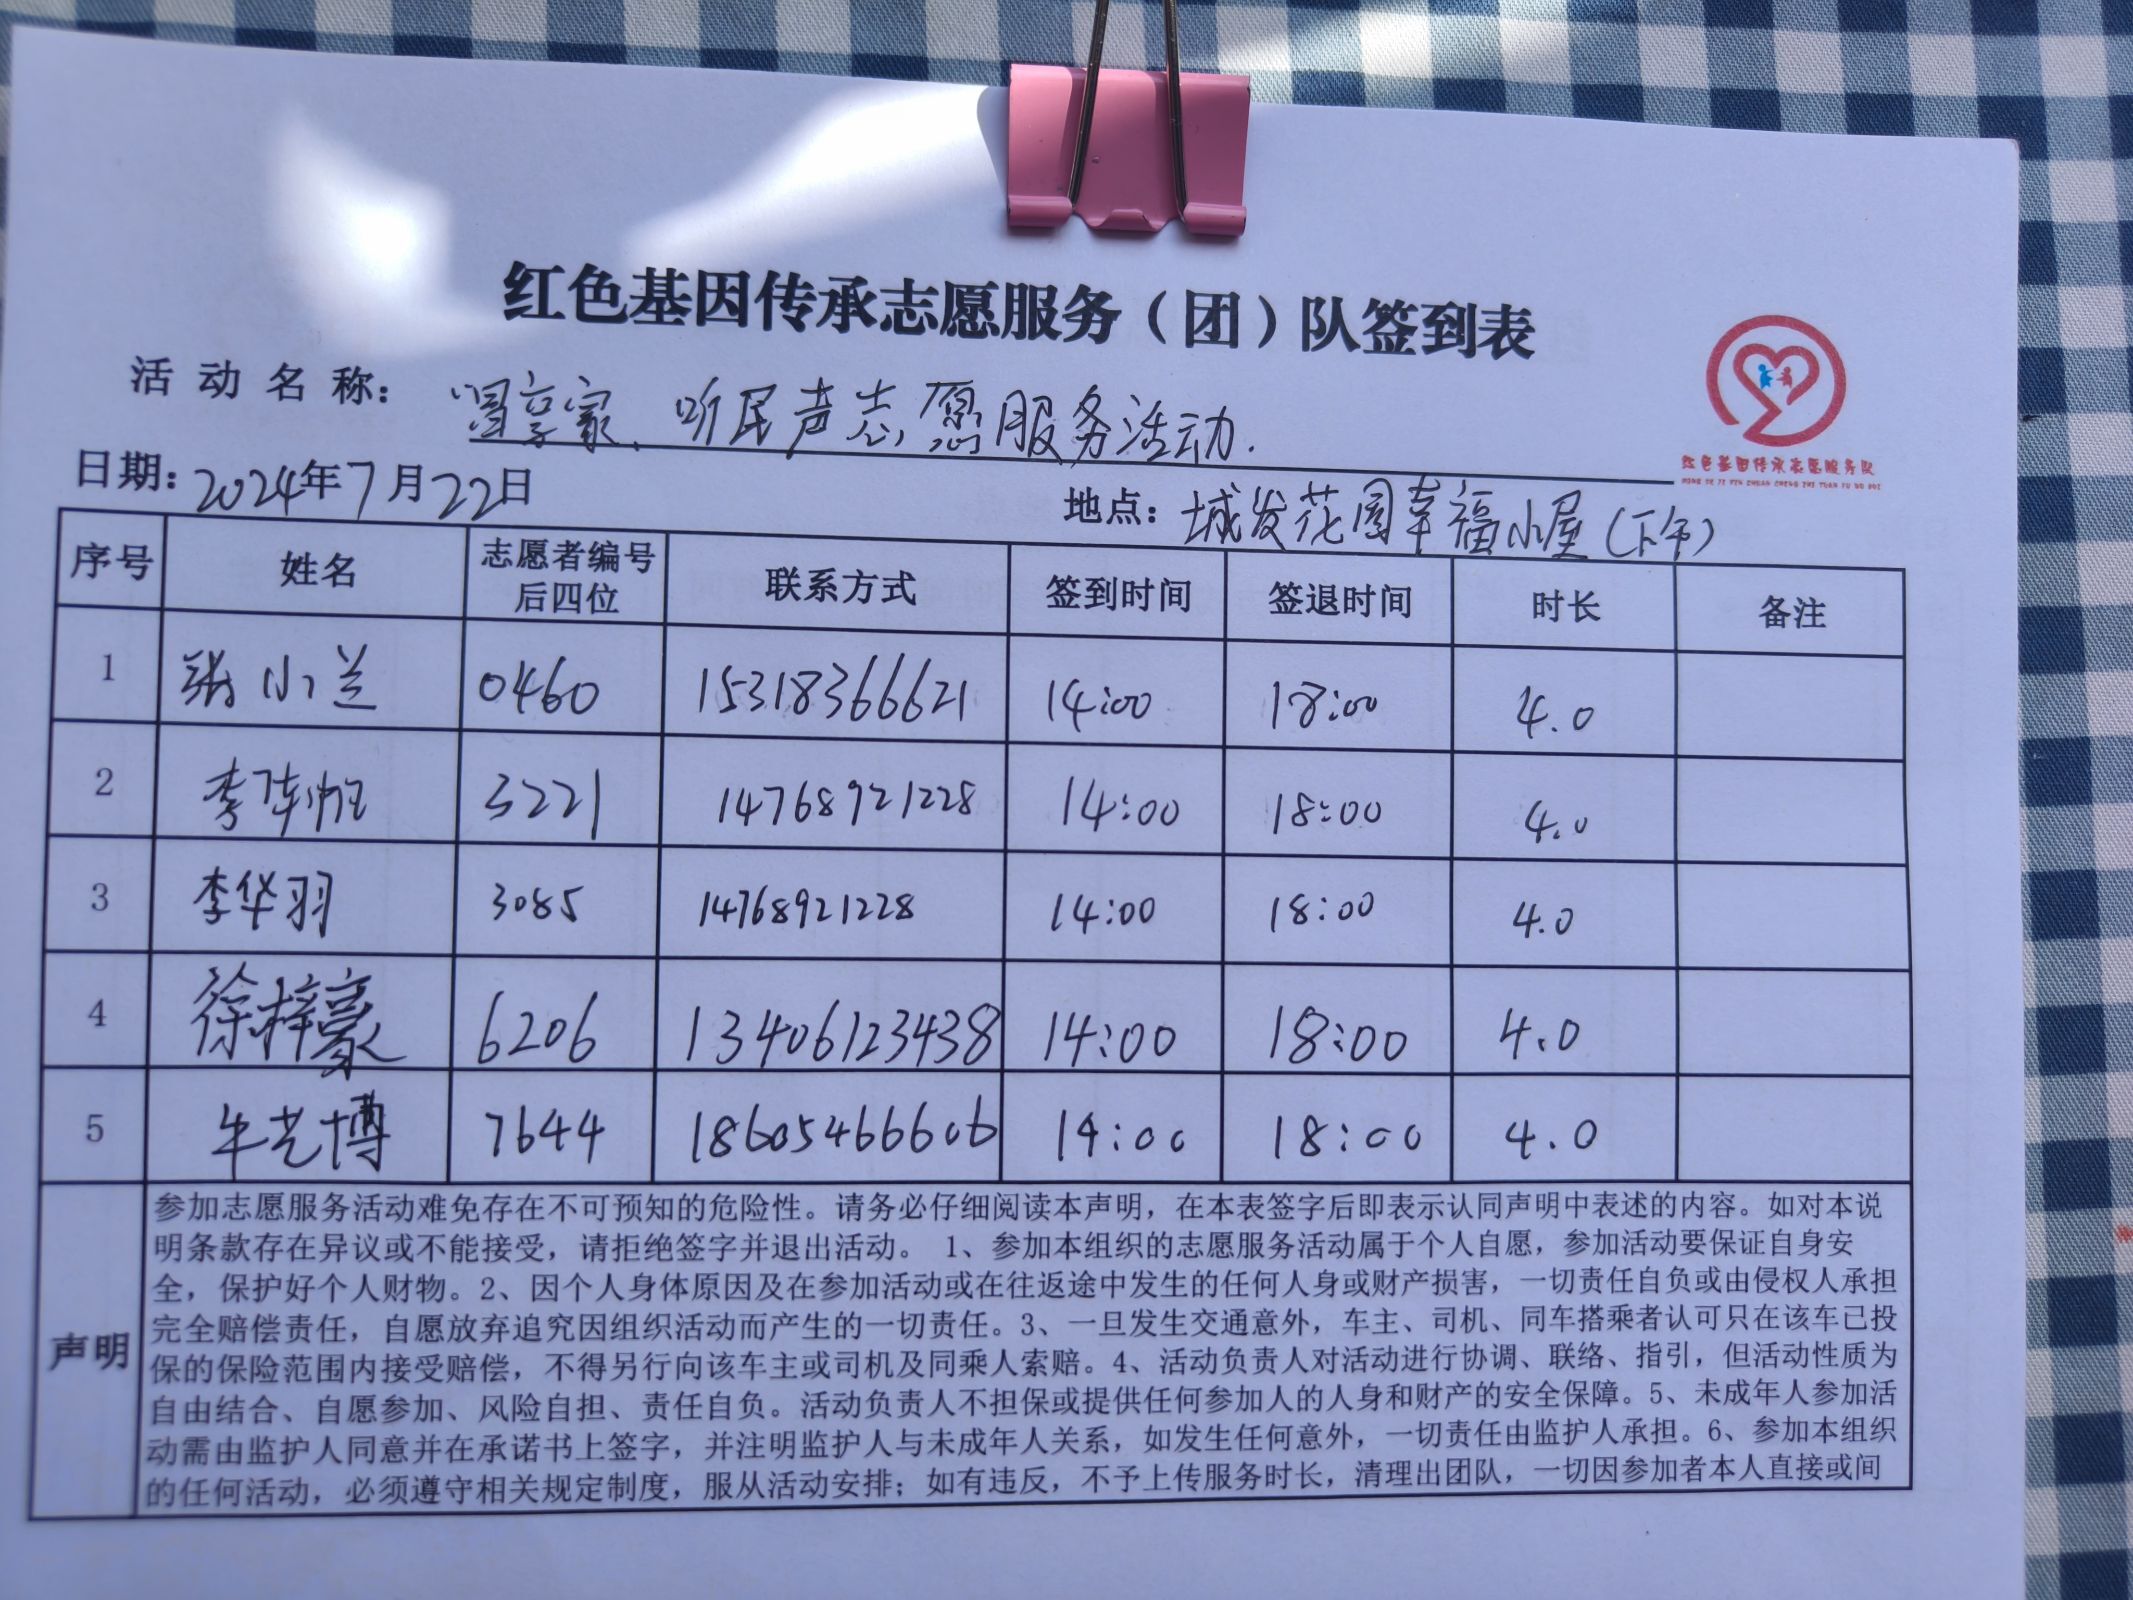 红色基因传承志愿服务（团）队签到表
活动名称：冒享家、听民声志愿服务活动.
红色基因传承志愿服务队
日期：2024年7月22日
地点：城发花园幸福小屋(下午)
序号 姓名 志愿者编号后四位 联系方式 签到时间 签退时间 时长 备注
1 张小兰 0460 15318366621 14:00 18:00 4.0
2 李 3221 14768921228 14:00 18:00 4.0
3 李华羽 3085 14768921228 14:00 18:00 4.0
4 徐梓豪 6206 13406123438 14:00 18:00 4.0
5 牛艺博 7644 18605466606 14:00 18:00 4.0
声明
参加志愿服务活动难免存在不可预知的危险性。请务必仔细阅读本声明，在本表签字后即表示认同声明中表述的内容。如对本说
明条款存在异议或不能接受，请拒绝签字并退出活动。 1、参加本组织的志愿服务活动属于个人自愿，参加活动要保证自身安
全，保护好个人财物。2、因个人身体原因及在参加活动或在往返途中发生的任何人身或财产损害，一切责任自负或由侵权人承担
完全赔偿责任，自愿放弃追究因组织活动而产生的一切责任。3、一旦发生交通意外，车主、司机、同车搭乘者认可只在该车已投
保的保险范围内接受赔偿，不得另行向该车主或司机及同乘人索赔。4、活动负责人对活动进行协调、联络、指引，但活动性质为
自由结合、自愿参加、风险自担、责任自负。活动负责人不担保或提供任何参加人的人身和财产的安全保障。5、未成年人参加活
动需由监护人同意并在承诺书上签字，并注明监护人与未成年人关系，如发生任何意外，一切责任由监护人承担。6、参加本组织
的任何活动，必须遵守相关规定制度，服从活动安排；如有违反，不予上传服务时长，清理出团队，一切因参加者本人直接或间